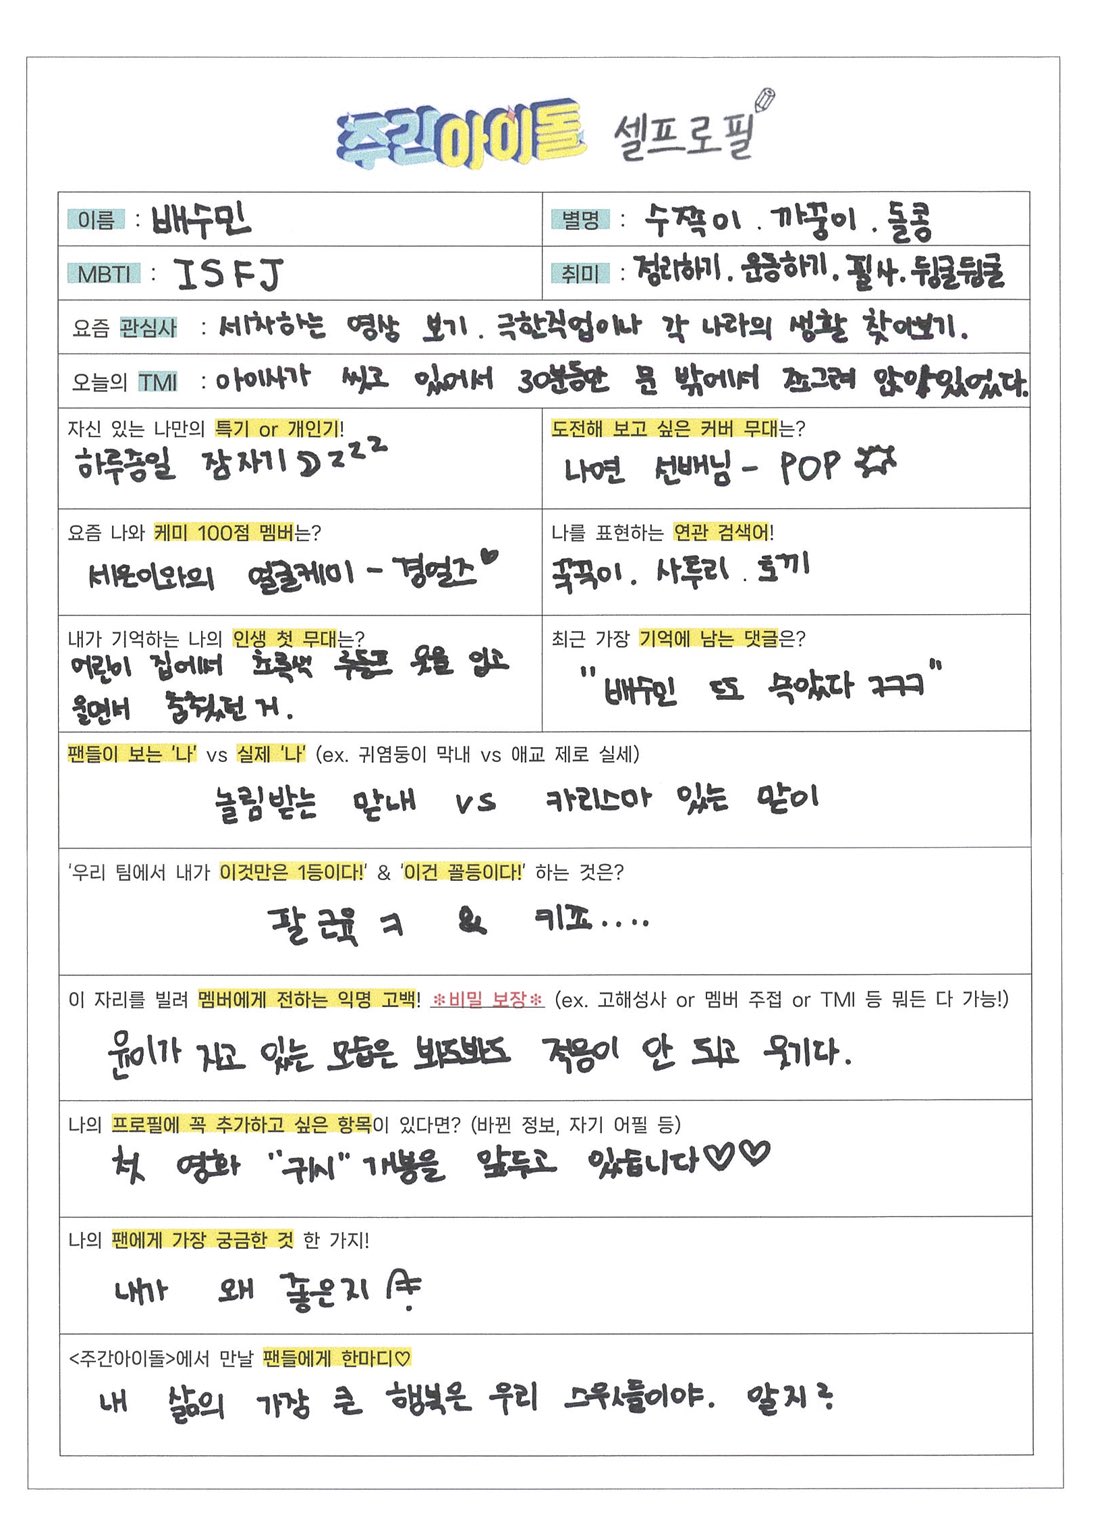 주간아이돌 셀프로필
이름 : 배수민
별명 : 수쪽이. 까꿍이. 돌콩
MBTI : ISFJ
취미 : 정리하기. 운동하기. 필사. 뒹굴뒹굴
요즘 관심사 : 세차하는 영상 보기. 극한직업이나 각 나라의 생활 찾아보기.
오늘의 TMI : 아이사가 씻고 있어서 30분동안 문 밖에서 쪼그려 앉아있었다.
자신 있는 나만의 특기 or 개인기!
하루종일 잠자기 zzz
도전해 보고 싶은 커버 무대는?
나연 선배님 - POP
요즘 나와 케미 100점 멤버는?
세은이와의 얼굴케미 - 경열즈♥
나를 표현하는 연관 검색어!
꾹꾹이. 사투리. 토끼
내가 기억하는 나의 인생 첫 무대는?
어린이 집에서 초록색 루돌프 옷을 입고
울면서 춤췄던 거.
최근 가장 기억에 남는 댓글은?
"배수민 또 속았다 ㅋㅋㅋ"
팬들이 보는 '나' vs 실제 '나' (ex. 귀염둥이 막내 vs 애교 제로 실세)
놀림받는 맏내 vs 카리스마 있는 맏이
'우리 팀에서 내가 이것만은 1등이다!' & '이건 꼴등이다!' 하는 것은?
팔 근육 ㅋ & 키표....
이 자리를 빌려 멤버에게 전하는 익명 고백! ※비밀 보장※ (ex. 고해성사 or 멤버 주접 or TMI 등 뭐든 다 가능!)
윤이가 자고 있는 모습은 봐도봐도 적응이 안 되고 웃기다.
나의 프로필에 꼭 추가하고 싶은 항목이 있다면? (바뀐 정보, 자기 어필 등)
첫 영화 "귀시" 개봉을 앞두고 있습니다♡♡
나의 팬에게 가장 궁금한 것 한 가지!
내가 왜 좋은지
<주간아이돌>에서 만날 팬들에게 한마디♡
내 삶의 가장 큰 행복은 우리 스윗들이야. 알지?